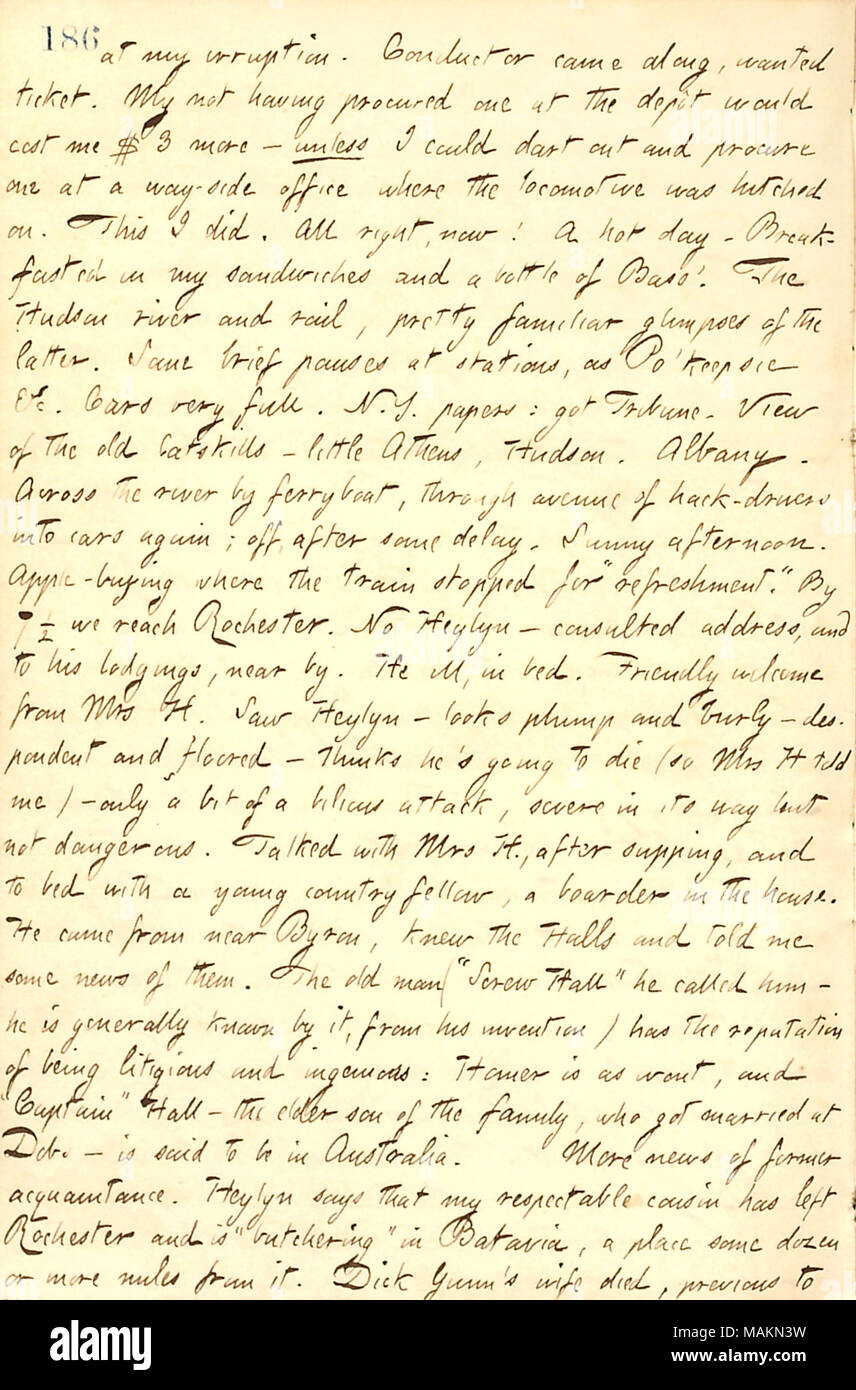 186
at my irruption. Conductor came along, wanted
ticket. My not having procured one at the depôt would
cost me $ 3 more — unless I could dart out and procure
one at a way-side office where the locomotive was hitched
on. This I did. All right, now! A hot day — Break-
fasted on my sandwiches and a bottle of Bass'. The
Hudson river and rail, pretty familiar glimpses of the
latter. Some brief pauses at stations, as Po'keepsie
&c. Cars very full. N.Y. papers: got Tribune. View
of the old Catskills — little Athens, Hudson. Albany.
Across the river by ferryboat, through avenue of hack-drivers
into cars again; off, after some delay. Sunny afternoon.
Apple-buying where the train stopped for "refreshment." By
7 1/2 we reach Rochester. No Heylyn — consulted address, and
to his lodgings, near by. He ill, in bed. Friendly welcome
from Mrs H. Saw Heylyn — looks plump and burly — des-
pondent and floored — thinks he's going to die (so Mrs H told
me) — only a bit of a bilious attack, severe in its way but
not dangerous. Talked with Mrs H., after supping, and
to bed with a young country fellow, a boarder in the house.
He came from near Byron, knew the Halls and told me
some news of them. The old man ("Screw Hall" he called him —
he is generally known by it, from his invention) has the reputation
of being litigious and ingenious: Homer is as wont, and
"Captain" Hall — the elder son of the family, who got married at
Dob. — is said to be in Australia. More news of former
acquaintance. Heylyn says that my respectable cousin has left
Rochester and is "butchering" in Batavia, a place some dozen
or more miles from it. Dick Gunn's wife died, previous to
alamy
Image ID: MAKN3W
www.alamy.com